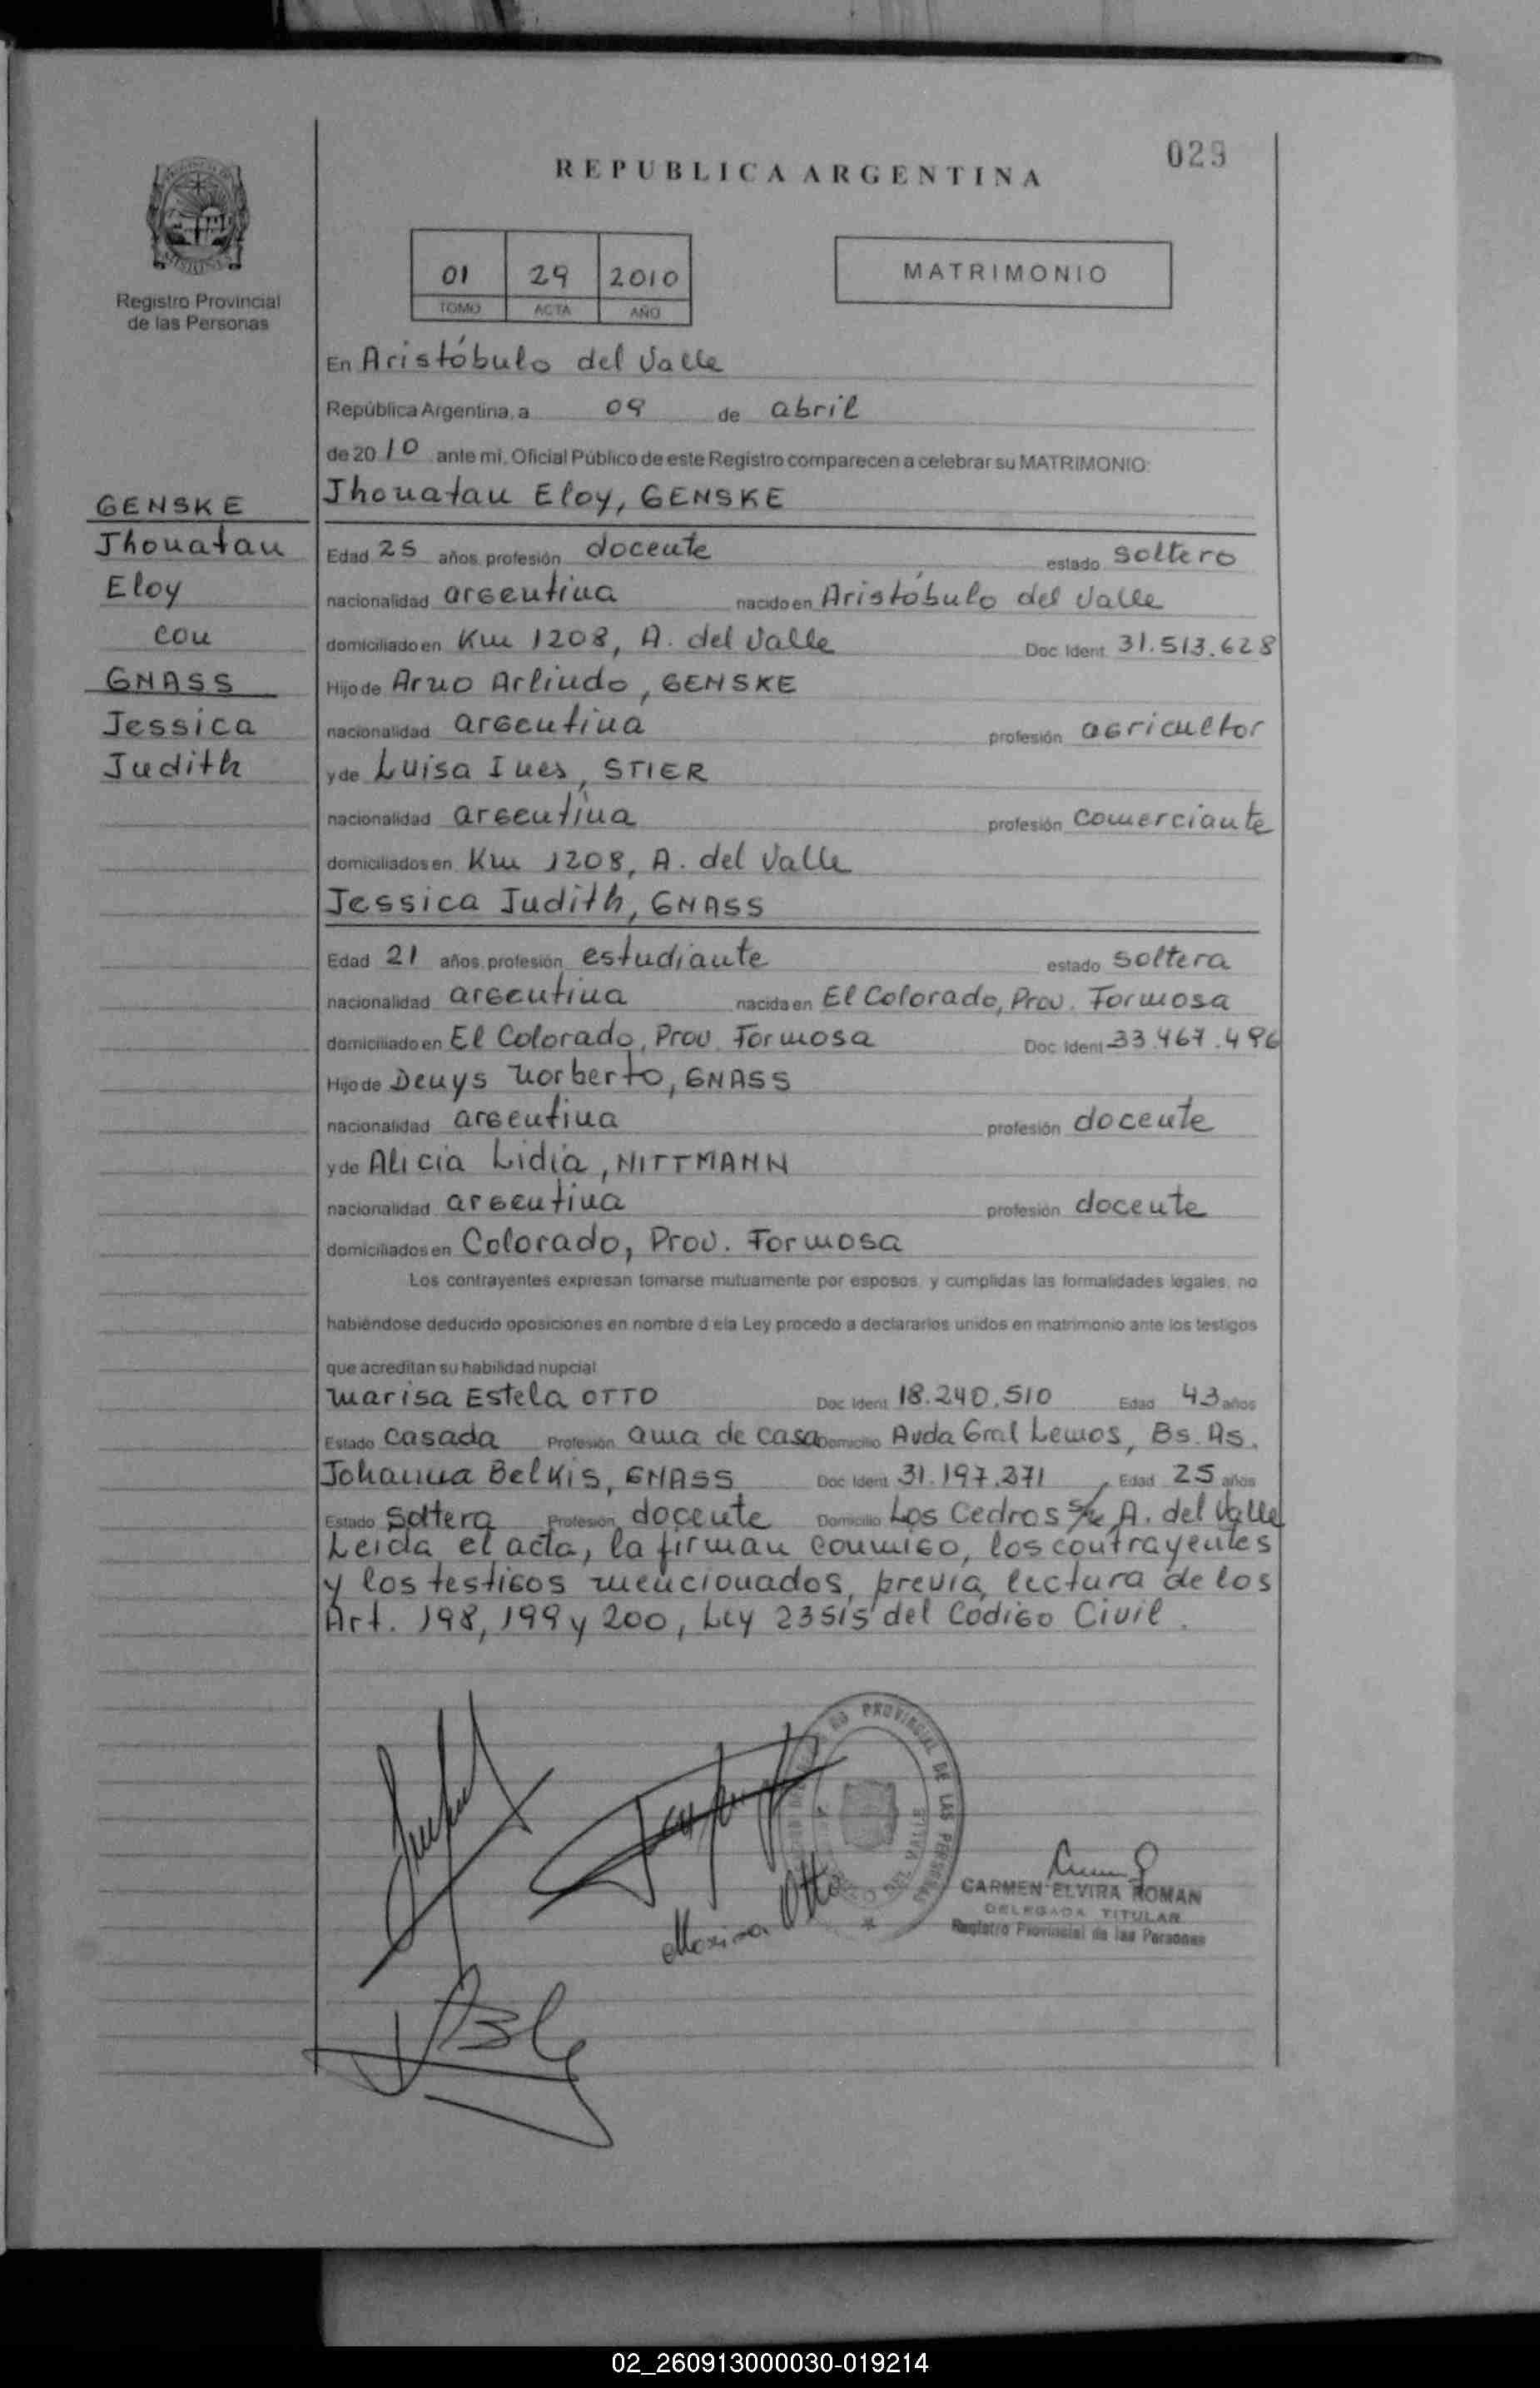 REPUBLICA ARGENTINA
029
MISIONES
Registro Provincial
de las Personas
01 29 2010
TOMO ACTA AÑO
MATRIMONIO
En Aristóbulo del Valle
República Argentina, a 09 de abril
de 2010 ante mi, Oficial Público de este Registro comparecen a celebrar su MATRIMONIO:
Jhonatan Eloy, GENSKE
GENSKE
Jhonatan
Eloy
con
GNASS
Jessica
Judith
Edad 25 años, profesión docente estado soltero
nacionalidad argentina nacido en Aristóbulo del Valle
domiciliado en Km 1208, A. del Valle Doc Ident. 31.513.628
Hijo de Arno Arlindo, GENSKE
nacionalidad argentina profesión agricultor
y de Luisa Ines, STIER
nacionalidad argentina profesión comerciante
domiciliados en Km 1208, A. del Valle
Jessica Judith, GNASS
Edad 21 años, profesión estudiante estado soltera
nacionalidad argentina nacida en El Colorado, Prov. Formosa
domiciliado en El Colorado, Prov. Formosa Doc Ident 33.467.496
Hijo de Denys Norberto, GNASS
nacionalidad argentina profesión docente
y de Alicia Lidia, NITTMANN
nacionalidad argentina profesión docente
domiciliados en Colorado, Prov. Formosa
Los contrayentes expresan tomarse mutuamente por esposos, y cumplidas las formalidades legales, no
habiéndose deducido oposiciones en nombre d ela Ley procedo a declararlos unidos en matrimonio ante los testigos
que acreditan su habilidad nupcial
Marisa Estela OTTO Doc Ident. 18.240.510 Edad 43 años
Estado casada Profesión ama de casa Domicilio Avda Gral Lemos, Bs. As.
Johanna Belkis, GNASS Doc Ident. 31.197.371 Edad 25 años
Estado soltera Profesión docente Domicilio Los Cedros s/n, A. del Valle
Leida el acta, la firman conmigo, los contrayentes
y los testigos mencionados, previa lectura de los
Art. 198, 199 y 200, Ley 23515 del Código Civil.
PROVINCIAL DE LAS PERSONAS
DEL VALLE
Marisa Otto
CARMEN ELVIRA ROMAN
DELEGADA TITULAR
Registro Provincial de las Personas
02_260913000030-019214